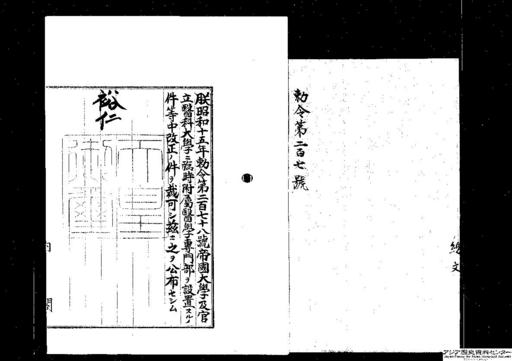 勅令第二百七號
総文
朕昭和十五年勅令第二百七十八號帝國大學及官
立醫科大學ニ臨時附属醫學專門部ヲ設置スルノ
件等中改正ノ件ヲ裁可シ茲ニ之ヲ公布セシム
裕仁
内閣
アジア歴史資料センター